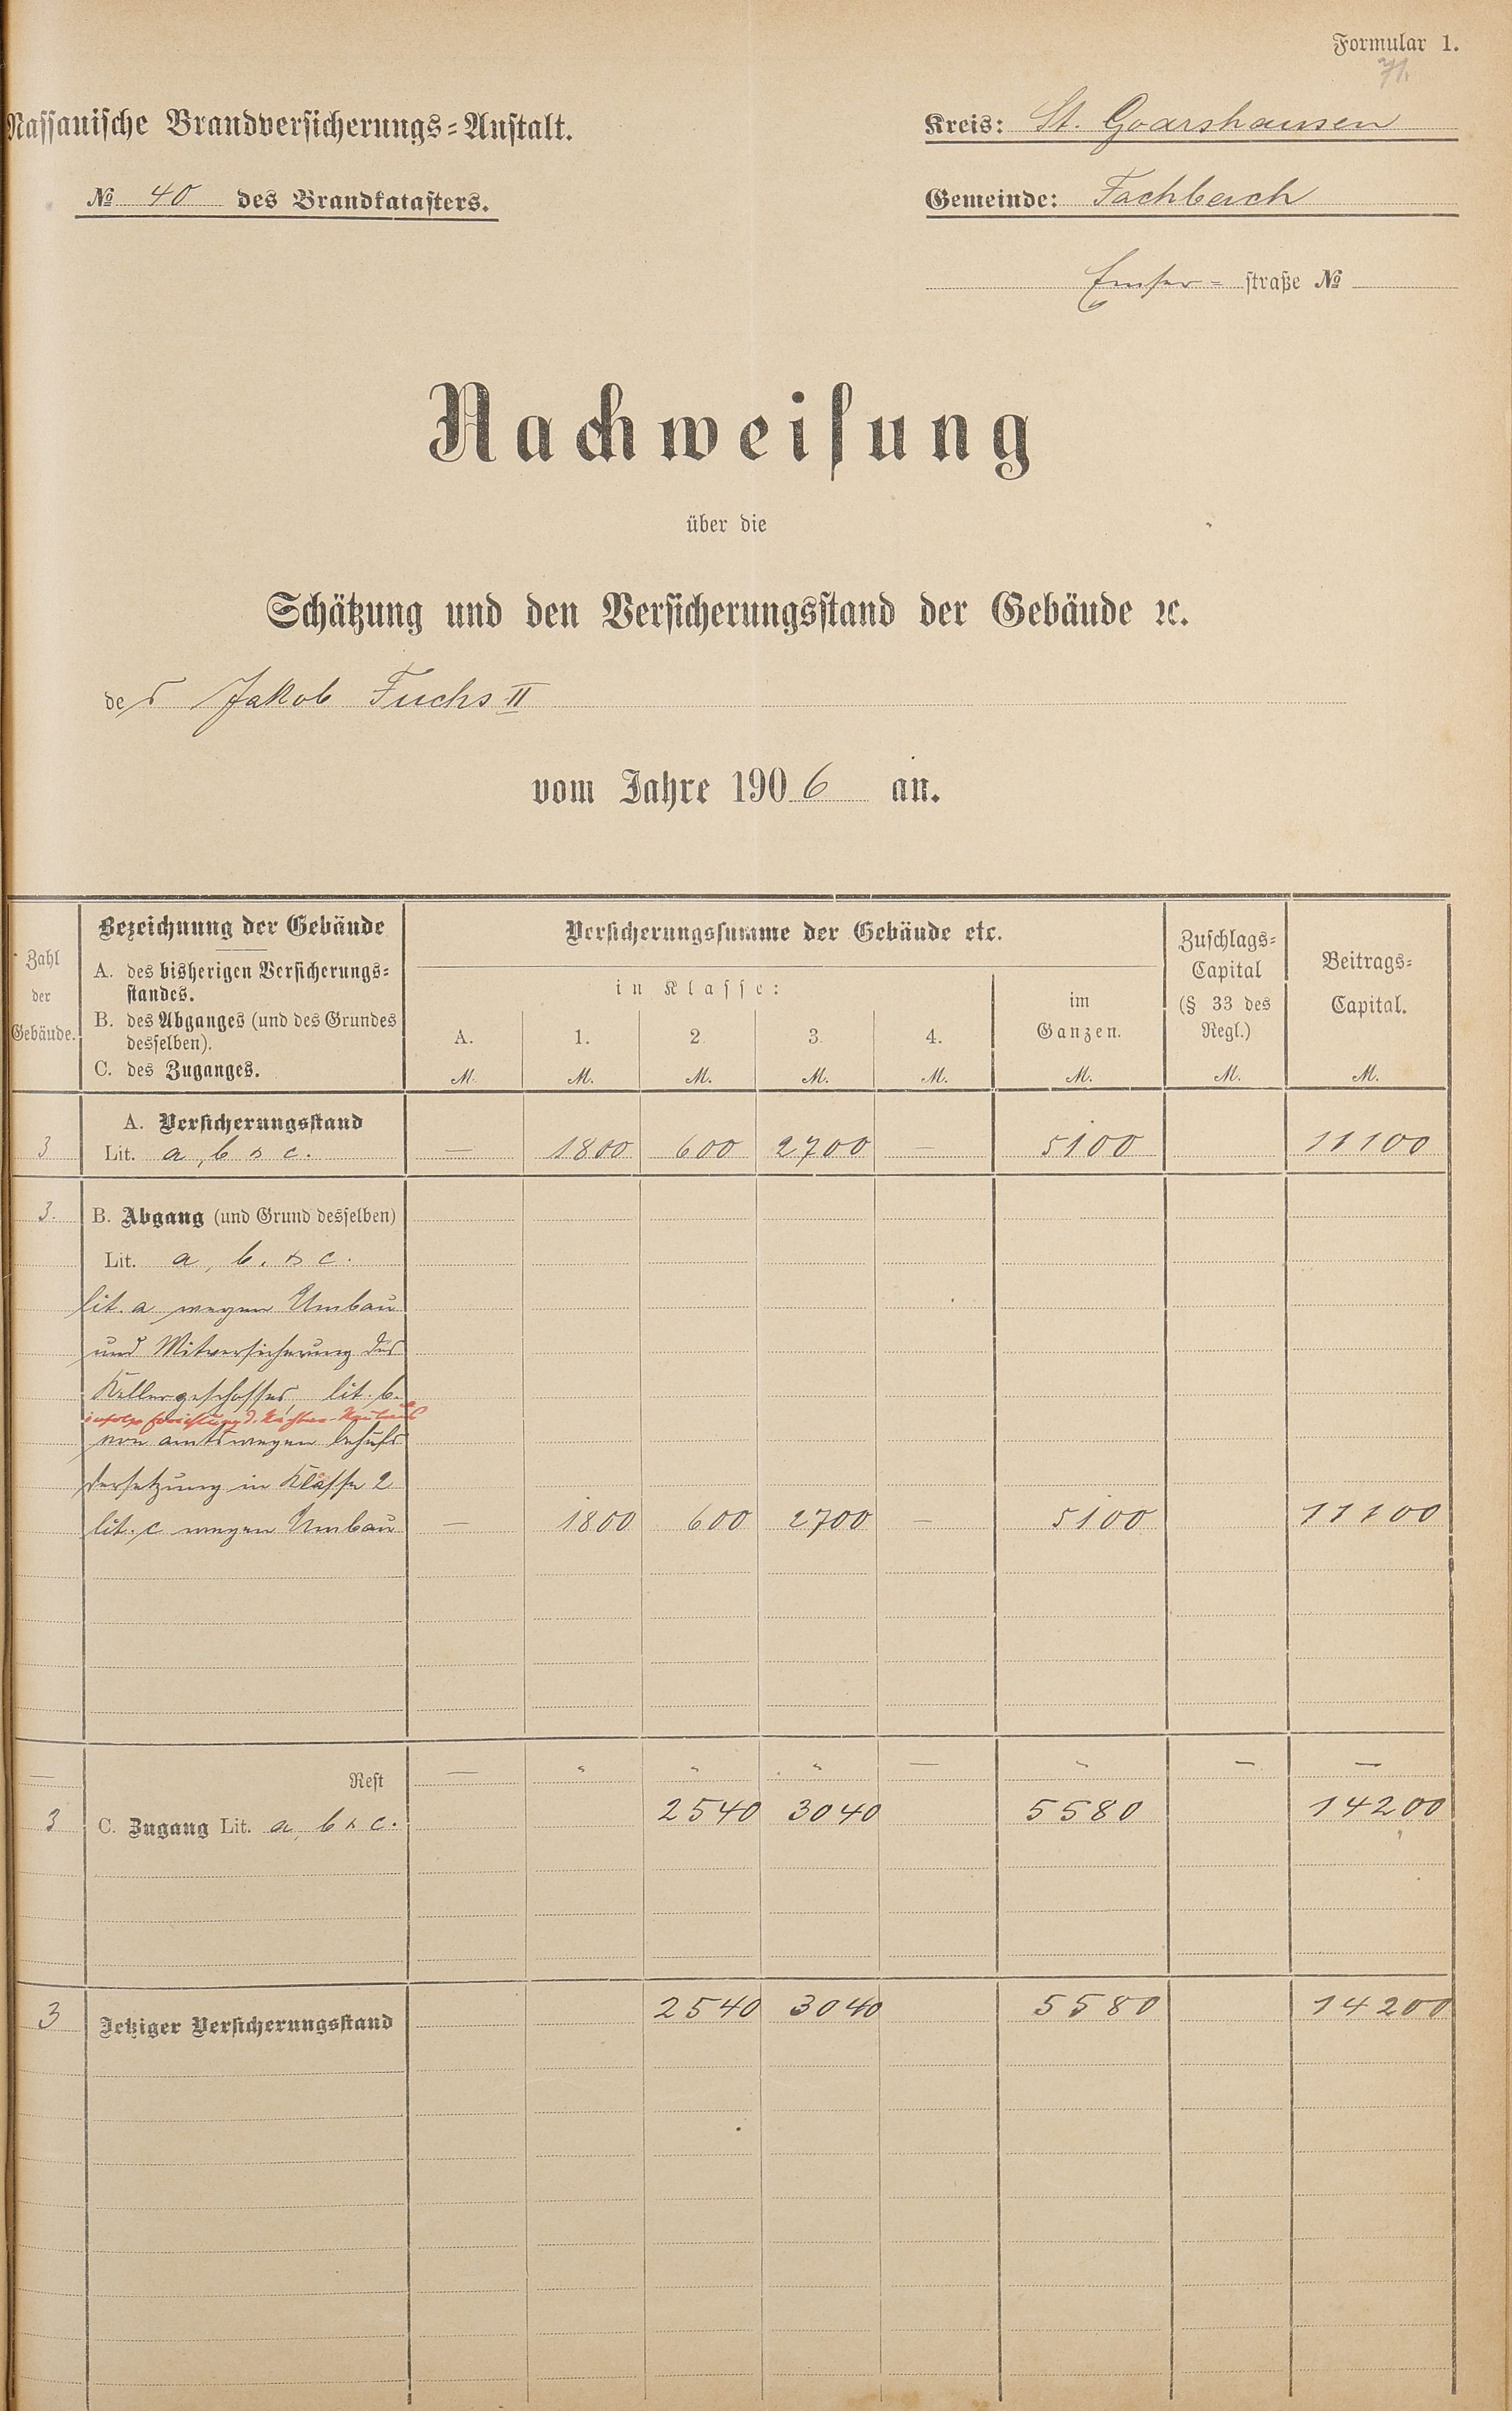 Formular 1.
71.
Nassauische Brandversicherungs-Anstalt.
Kreis: St. Goarshausen
№ 40 des Brandkatasters.
Gemeinde: Fachbach
Emser- straße №
Nachweisung
über die
Schätzung und den Versicherungsstand der Gebäude ꝛc.
des Jakob Fuchs II
vom Jahre 1906 an.
Zahl der Gebäude.
Bezeichnung der Gebäude
A. des bisherigen Versicherungs-
standes.
B. des Abganges (und des Grundes
desselben).
C. des Zuganges.
Versicherungssumme der Gebäude etc.
in Klasse:
A. 1. 2. 3. 4.
im
Ganzen.
Zuschlags-
Capital
(§ 33 des
Regl.)
Beitrags-
Capital.
M. M. M. M. M. M. M. M.
A. Versicherungsstand
3 Lit. a, b & c. — 1800 600 2700 — 5100 11100
3. B. Abgang (und Grund desselben)
Lit. a, b. & c.
lit. a wegen Umbau
und Mitversicherung des
Kellergeschosses, lit. b.
infolge Errichtung d.
von amtswegen behufs
Versetzung in Klasse 2
lit. c wegen Umbau — 1800 600 2700 — 5100 11100
— Rest — " " " — " — —
3 C. Zugang Lit. a, b & c. 2540 3040 5580 14200
3 Jetziger Versicherungsstand 2540 3040 5580 14200